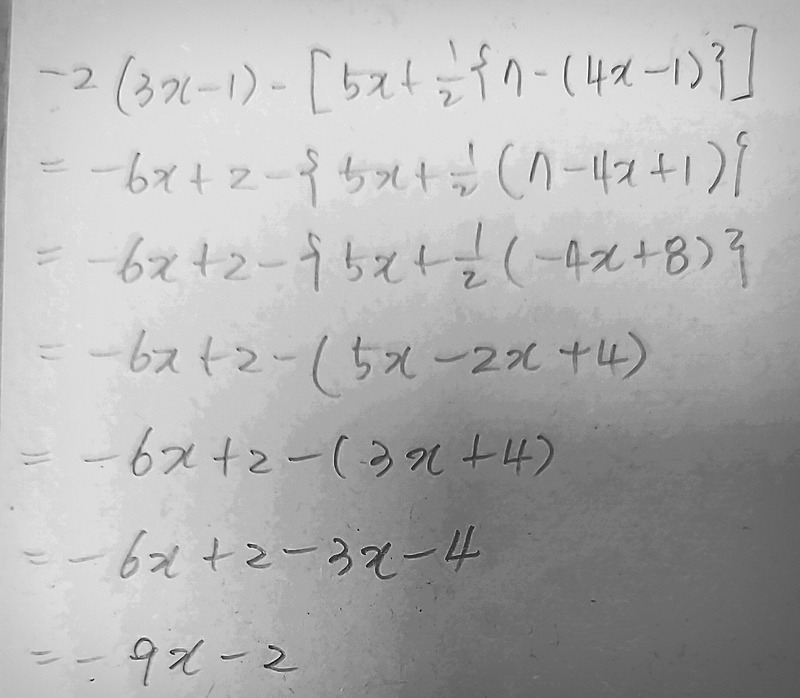 -2(3x-1)-[5x+\frac{1}{2}{7-(4x-1)}]
=-6x+2-{5x+\frac{1}{2}(7-4x+1)}
=-6x+2-{5x+\frac{1}{2}(-4x+8)}
=-6x+2-(5x-2x+4)
=-6x+2-(3x+4)
=-6x+2-3x-4
=-9x-2